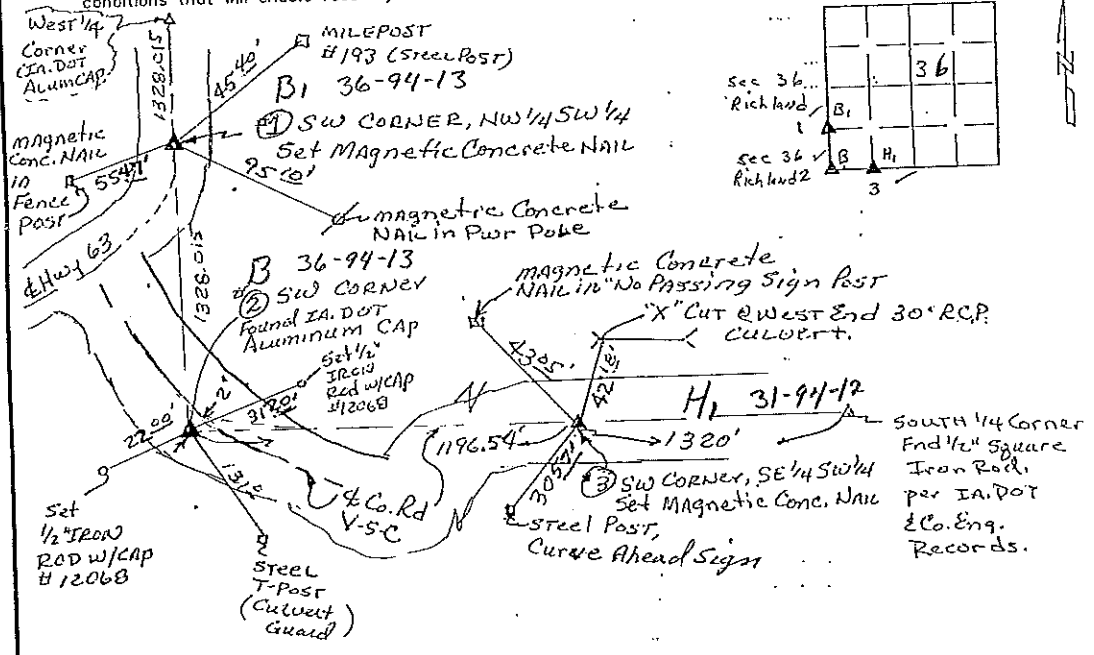 conditions that will enable
West 1/4
Corner
(IA. DOT
ALUM CAP)
1328.015
45.40'
MILEPOST
#193 (STEEL POST)
B1 36-94-13
① SW CORNER, NW 1/4 SW 1/4
Set MAGNETIC CONCRETE NAIL
magnetic
Conc. NAIL
in
Fence
Post
55.47'
95.10'
MAGNETIC Concrete
NAIL in Pwr Pole
℄ Hwy 63
1328.015
B 36-94-13
② SW CORNER
Found IA. DOT
Aluminum CAP
Set 1/2"
IRON
Rod w/CAP
#12068
2"
31.20'
22.00'
Set
1/2" IRON
ROD W/CAP
#12068
STEEL
T-POST
(Culvert
Guard)
℄ Co. Rd
V-5-C
magnetic Concrete
NAIL in "No Passing Sign Post
"X" CUT @ WEST End 30" R.C.P.
CULVERT.
43.05'
42.18'
H1 31-94-12
1196.54'
1320'
30.57'
③ SW CORNER, SE 1/4 SW 1/4
Set MAGNETIC CONC. NAIL
STEEL POST,
Curve Ahead Sign
SOUTH 1/4 Corner
Fnd 1/2" Square
Iron Rod.
per IA. DOT
& Co. Eng.
Records.
36
sec 36
Richland
1
B1
sec 36
Richland 2
B
H1
3
N